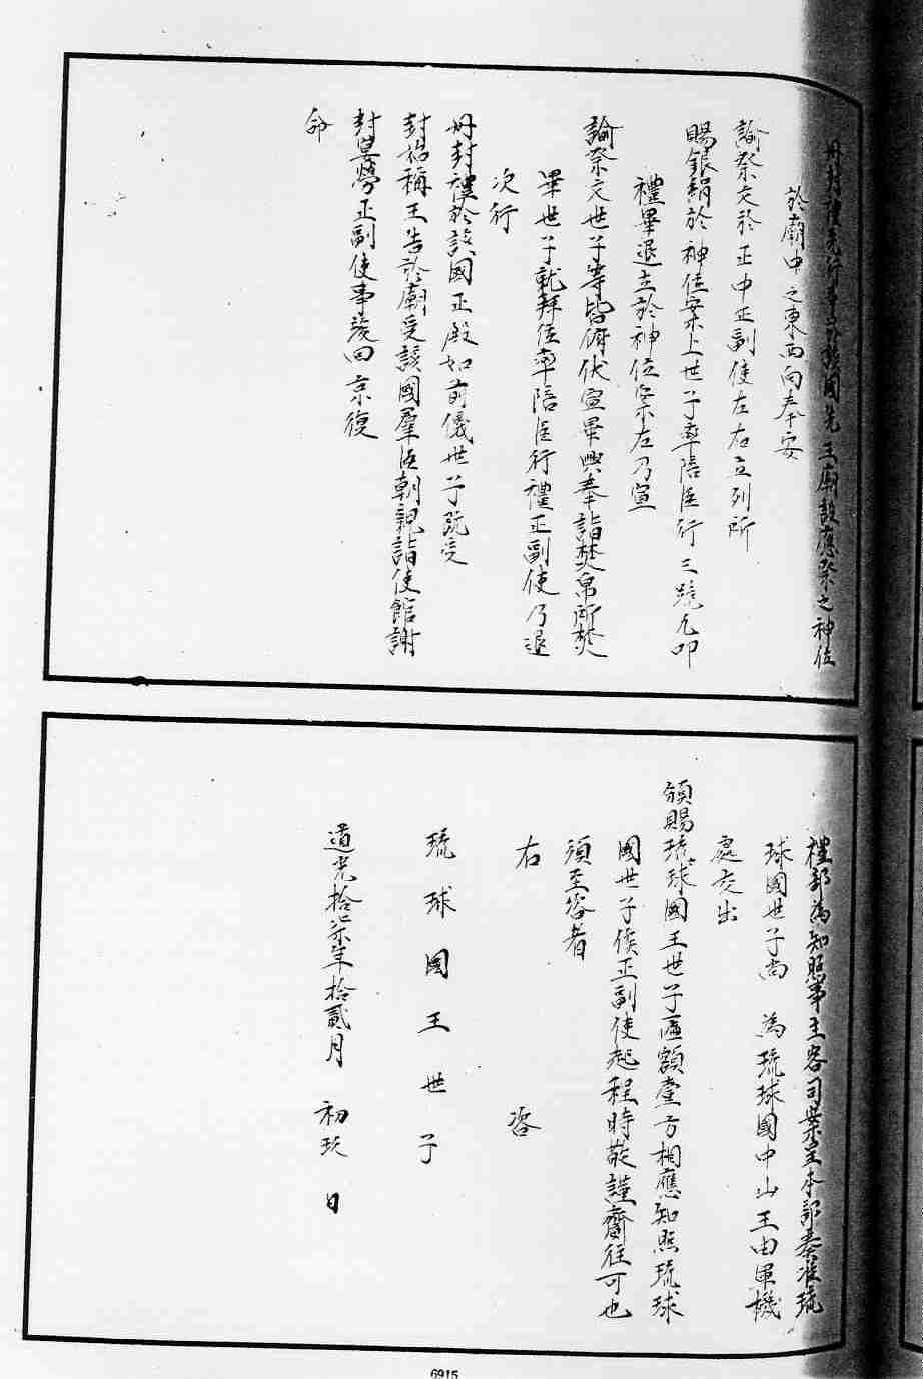 冊封禮先行事於該國先王廟設應祭之神位
於廟中之東西向奉安
諭祭文於正中正副使左右立列所
賜銀絹於神位案上世子率陪臣行三跪九叩
禮畢退立於神位案左乃宣
諭祭文世子等皆俯伏宣畢興奉詣焚帛所焚
畢世子就拜位率陪臣行禮正副使乃退
次行
冊封禮於該國正殿如前儀世子既受
封始稱王告於廟受該國羣臣朝親詣使館謝
封宴勞正副使事竣回京復
命
禮部為知照事主客司案呈本部奏准琉
球國世子尚 為琉球國中山王由軍機
處交出
頒賜琉球國王世子匾額壹方相應知照琉球
國世子俟正副使起程時敬謹齎往可也
須至咨者
右 咨
琉球國王世子
道光拾柒年拾貳月 初玖 日
6915